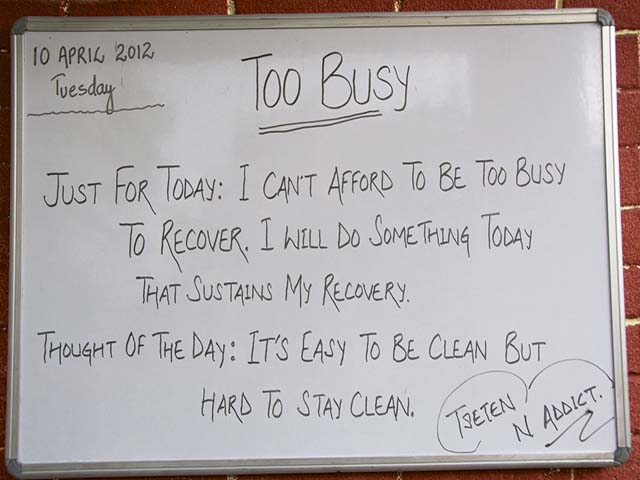 10 APRIL 2012
Tuesday
TOO BUSY
JUST FOR TODAY: I CAN'T AFFORD TO BE TOO BUSY
TO RECOVER. I WILL DO SOMETHING TODAY
THAT SUSTAINS MY RECOVERY.
THOUGHT OF THE DAY: IT'S EASY TO BE CLEAN BUT
HARD TO STAY CLEAN.
TSETEN
N ADDICT.